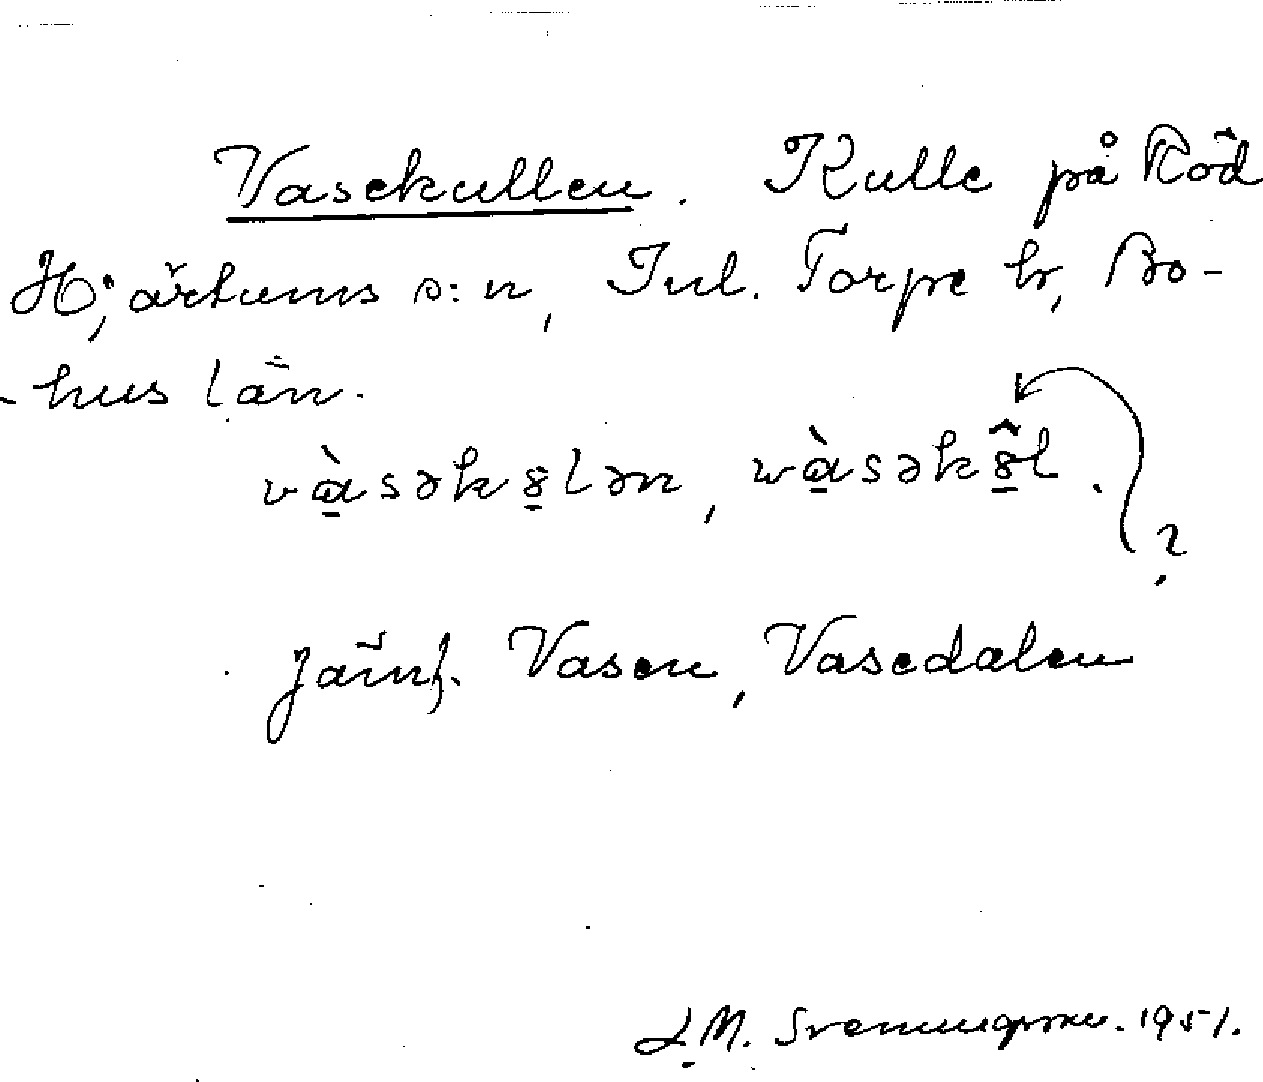 Vasekullen. Kulle på Röd
Hjärtums s:n, Inl. Torpe hr, Bo-
hus län.
vàsəkȣlən, wàsəkȣ̂l.
?
Jämf. Vasen, Vasedalen
S.M. Svenningsson. 1951.